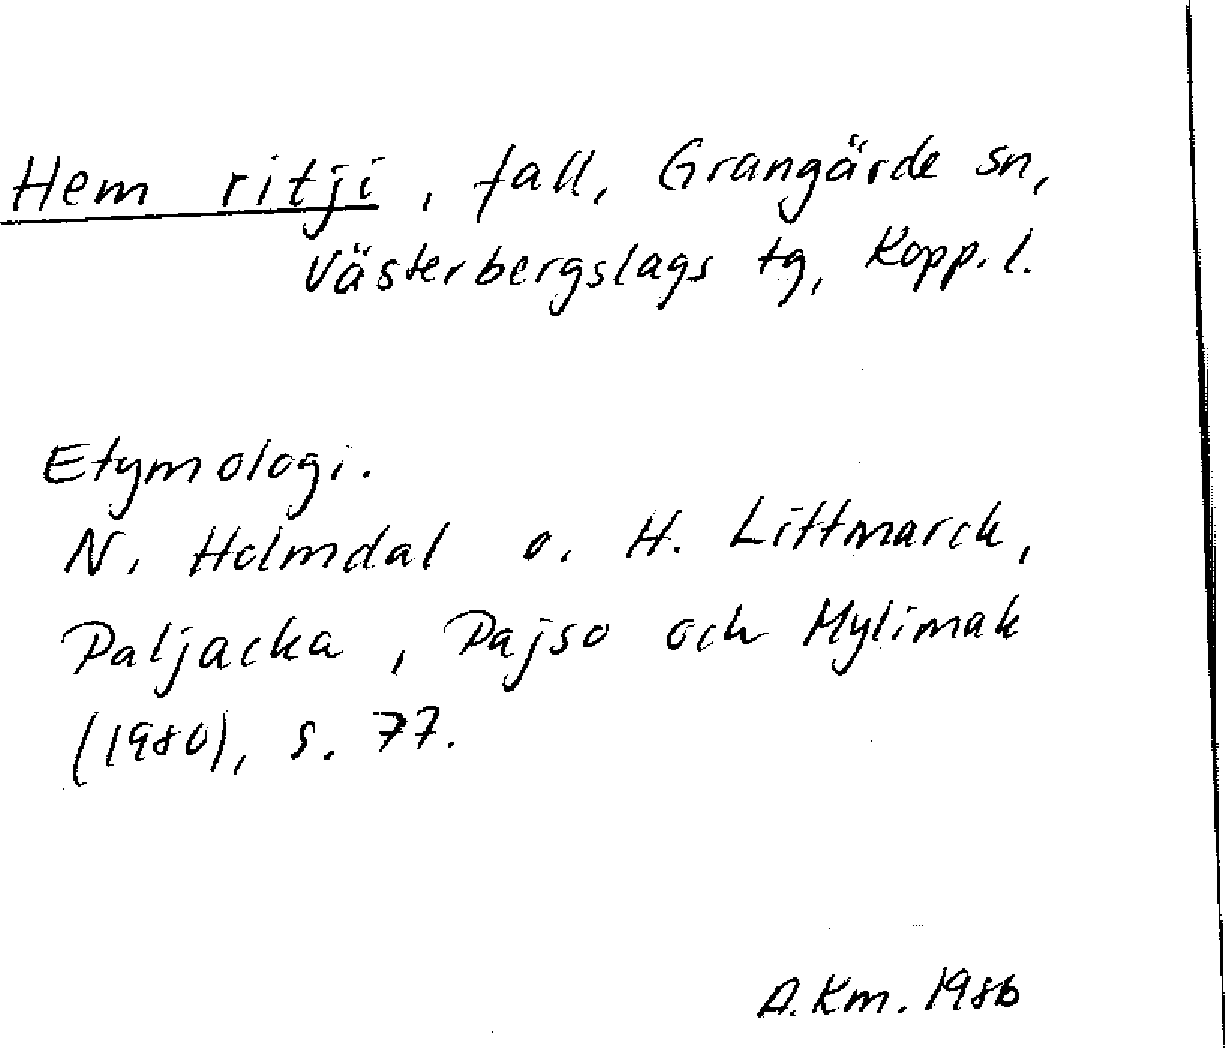 Hem ritji, fall, Grangärde sn,
Västerbergslags tg, Kopp. l.
Etymologi.
N. Holmdal o. H. Littmarck,
Paljacka, Pajso och Mylimak
(1980), s. 77.
A. Km. 1986